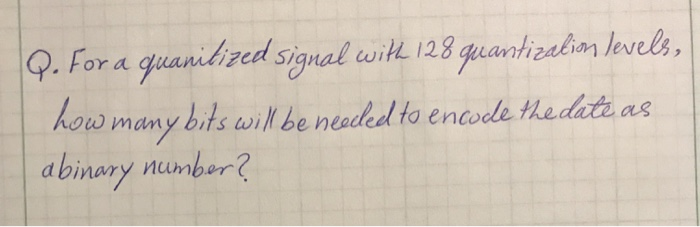 Q. For a quanitized signal with 128 quantization levels,
how many bits will be needed to encode the date as
a binary number?